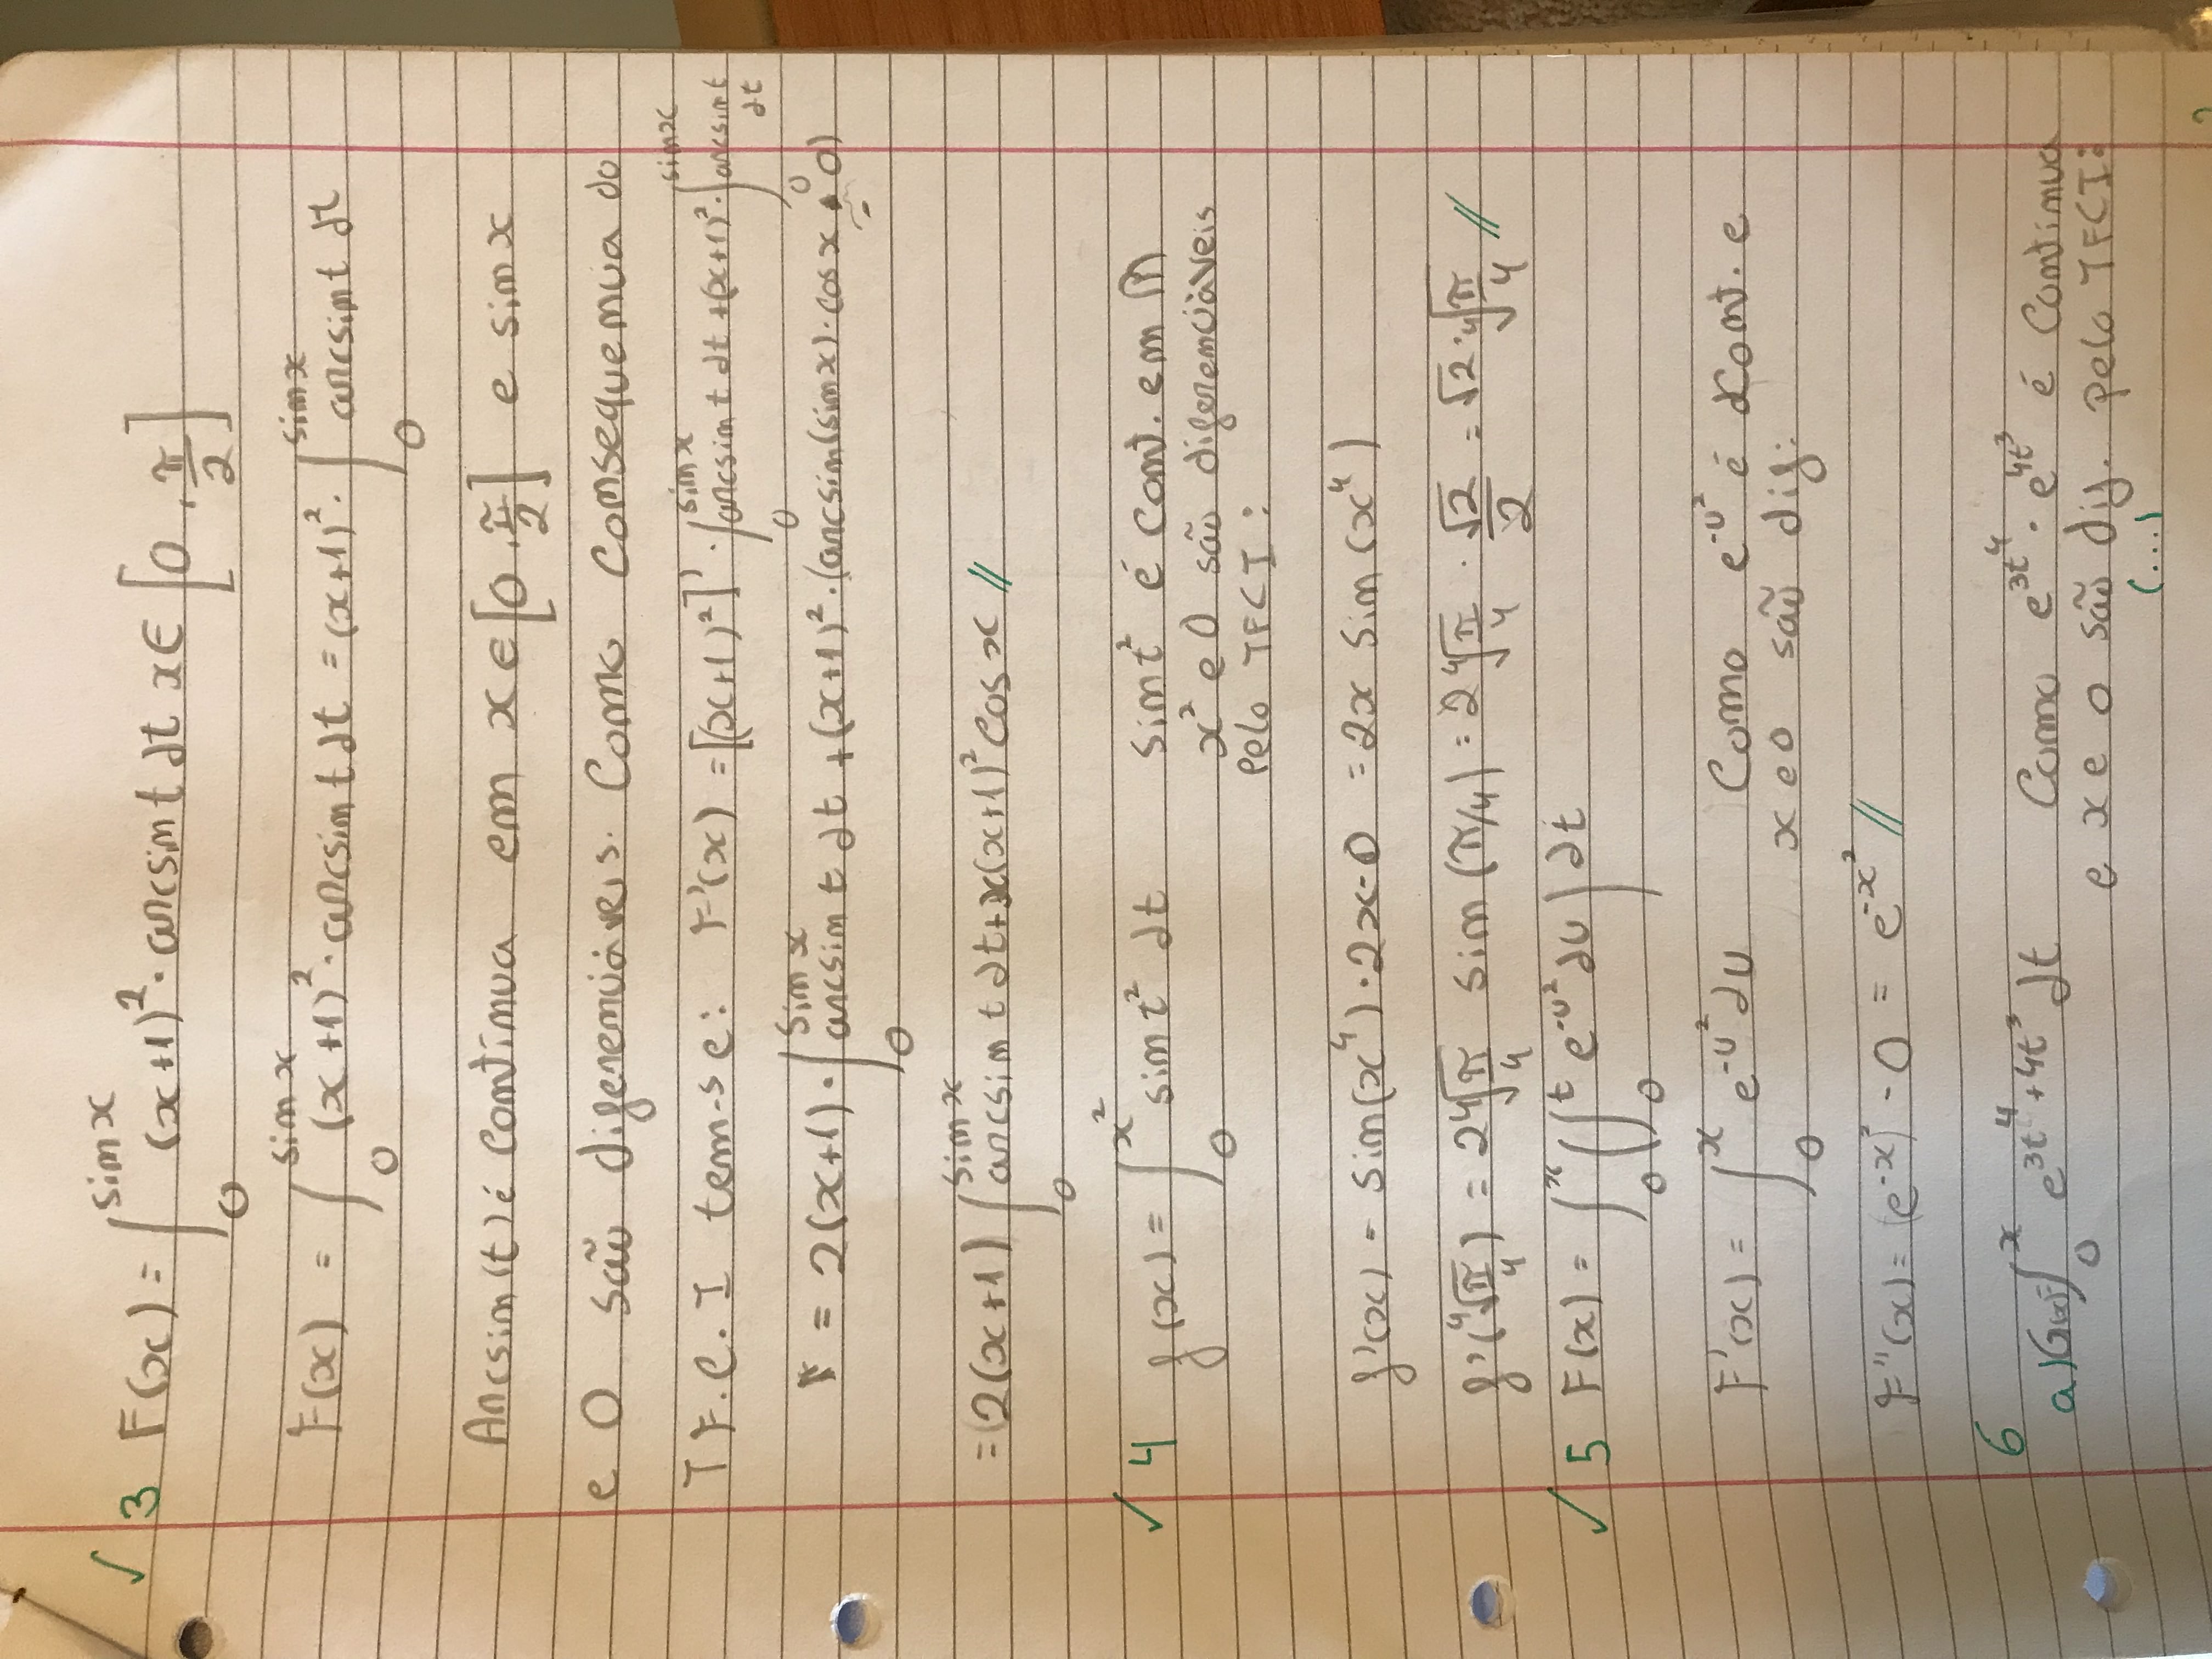 √ 3 F(x) = ∫₀^{sin x} (x+1)² · arcsin t dt x ∈ [0, π/2]
F(x) = ∫₀^{sin x} (x+1)² · arcsin t dt = (x+1)² · ∫₀^{sin x} arcsin t dt
Arcsin(t) é contínua em x ∈ [0, π/2] e sin x
e 0 são diferenciáveis. Como consequencia do
T F.C.I tem-se: F'(x) = [(x+1)²]' · ∫₀^{sin x} arcsin t dt + (x+1)² · ∫₀^{sin x} arcsin t dt
= 2(x+1) · ∫₀^{sin x} arcsin t dt + (x+1)² · (arcsin(sin x) · cos x - 0)
= 2(x+1) ∫₀^{sin x} arcsin t dt + x(x+1)² cos x //
√ 4 f(x) = ∫₀^{x²} sin t² dt sin t² é cont. em ℝ
x² e 0 são diferenciáveis
pelo TFCI :
f'(x) = sin(x⁴) · 2x - 0 = 2x sin(x⁴)
f'(⁴√π/4) = 2 ⁴√π/4 sin(π/4) = 2 ⁴√π/4 · √2/2 = √2 · ⁴√π/4 //
√ 5 F(x) = ∫₀^x (∫₀^t e^{-u²} du) dt
F'(x) = ∫₀^x e^{-u²} du Como e^{-u²} é cont. e
x e 0 são dif:
F''(x) = (e^{-x})² - 0 = e^{-x²} //
6
a) G(x)= ∫₀^x e^{3t⁴+4t³} dt Como e^{3t⁴} · e^{4t³} é continua
e x e 0 são dif. pelo TFCI:
(...)